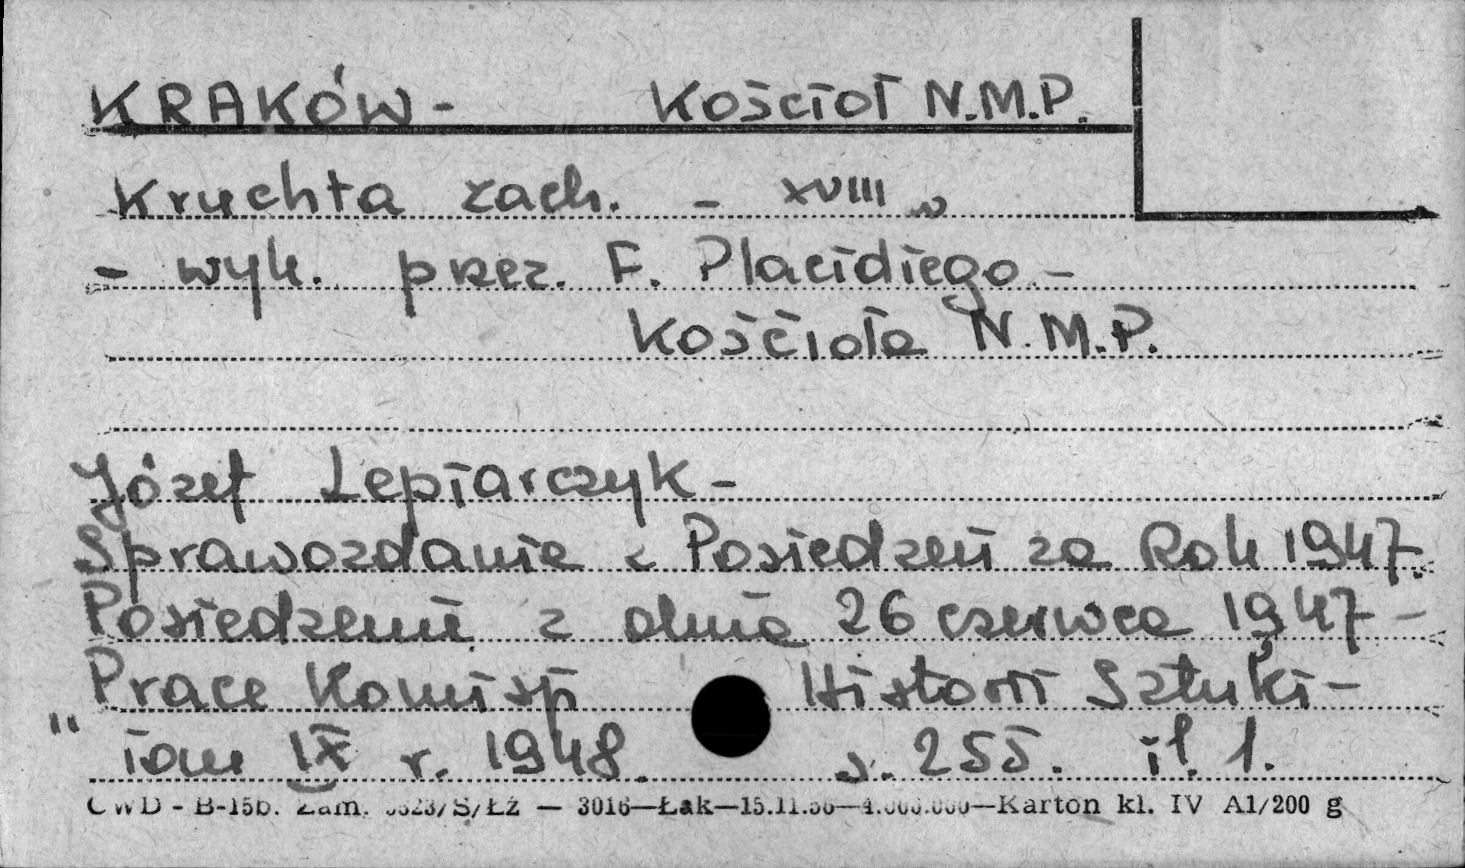 KRAKÓW - Kościoł N.M.P.
Kruchta zach. - XVIII w
- wyk. przez. F. Placidiego -
Kościoła N.M.P.
Józef Lepiarczyk -
Sprawozdanie z Posiedzeń za Rok 1947.
Posiedzenie z dnia 26 czerwca 1947 -
Prace Komisji Historii Sztuki -
" tom IX r. 1948. s. 255. il. 1.
CWD - B-15b. Zam. /S/Łż — 3016—Łak—15.11.56—4.000.000—Karton kl. IV A1/200 g